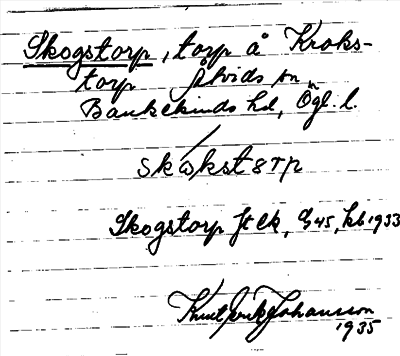 Skogstorp, torp å Kroks-
torp Åtvids sn
Bankekinds hd, Ögl. l.
skωkstωrp
Skogstorp Jt ek, G 45, kb 1933
Knut Erik Johansson
1935